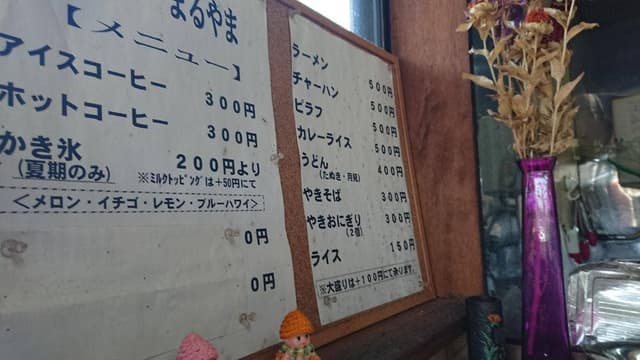 まるやま
【メニュー】
アイスコーヒー 300円
ホットコーヒー 300円
かき氷 200円より
(夏期のみ) ※ミルクトッピングは+50円にて
<メロン・イチゴ・レモン・ブルーハワイ>
0円
0円
ラーメン 500円
チャーハン 500円
ピラフ 500円
カレーライス 500円
うどん 400円
(たぬき・月見)
やきそば 300円
やきおにぎり 300円
(2個)
ライス 150円
※大盛りは+100円にて承ります。